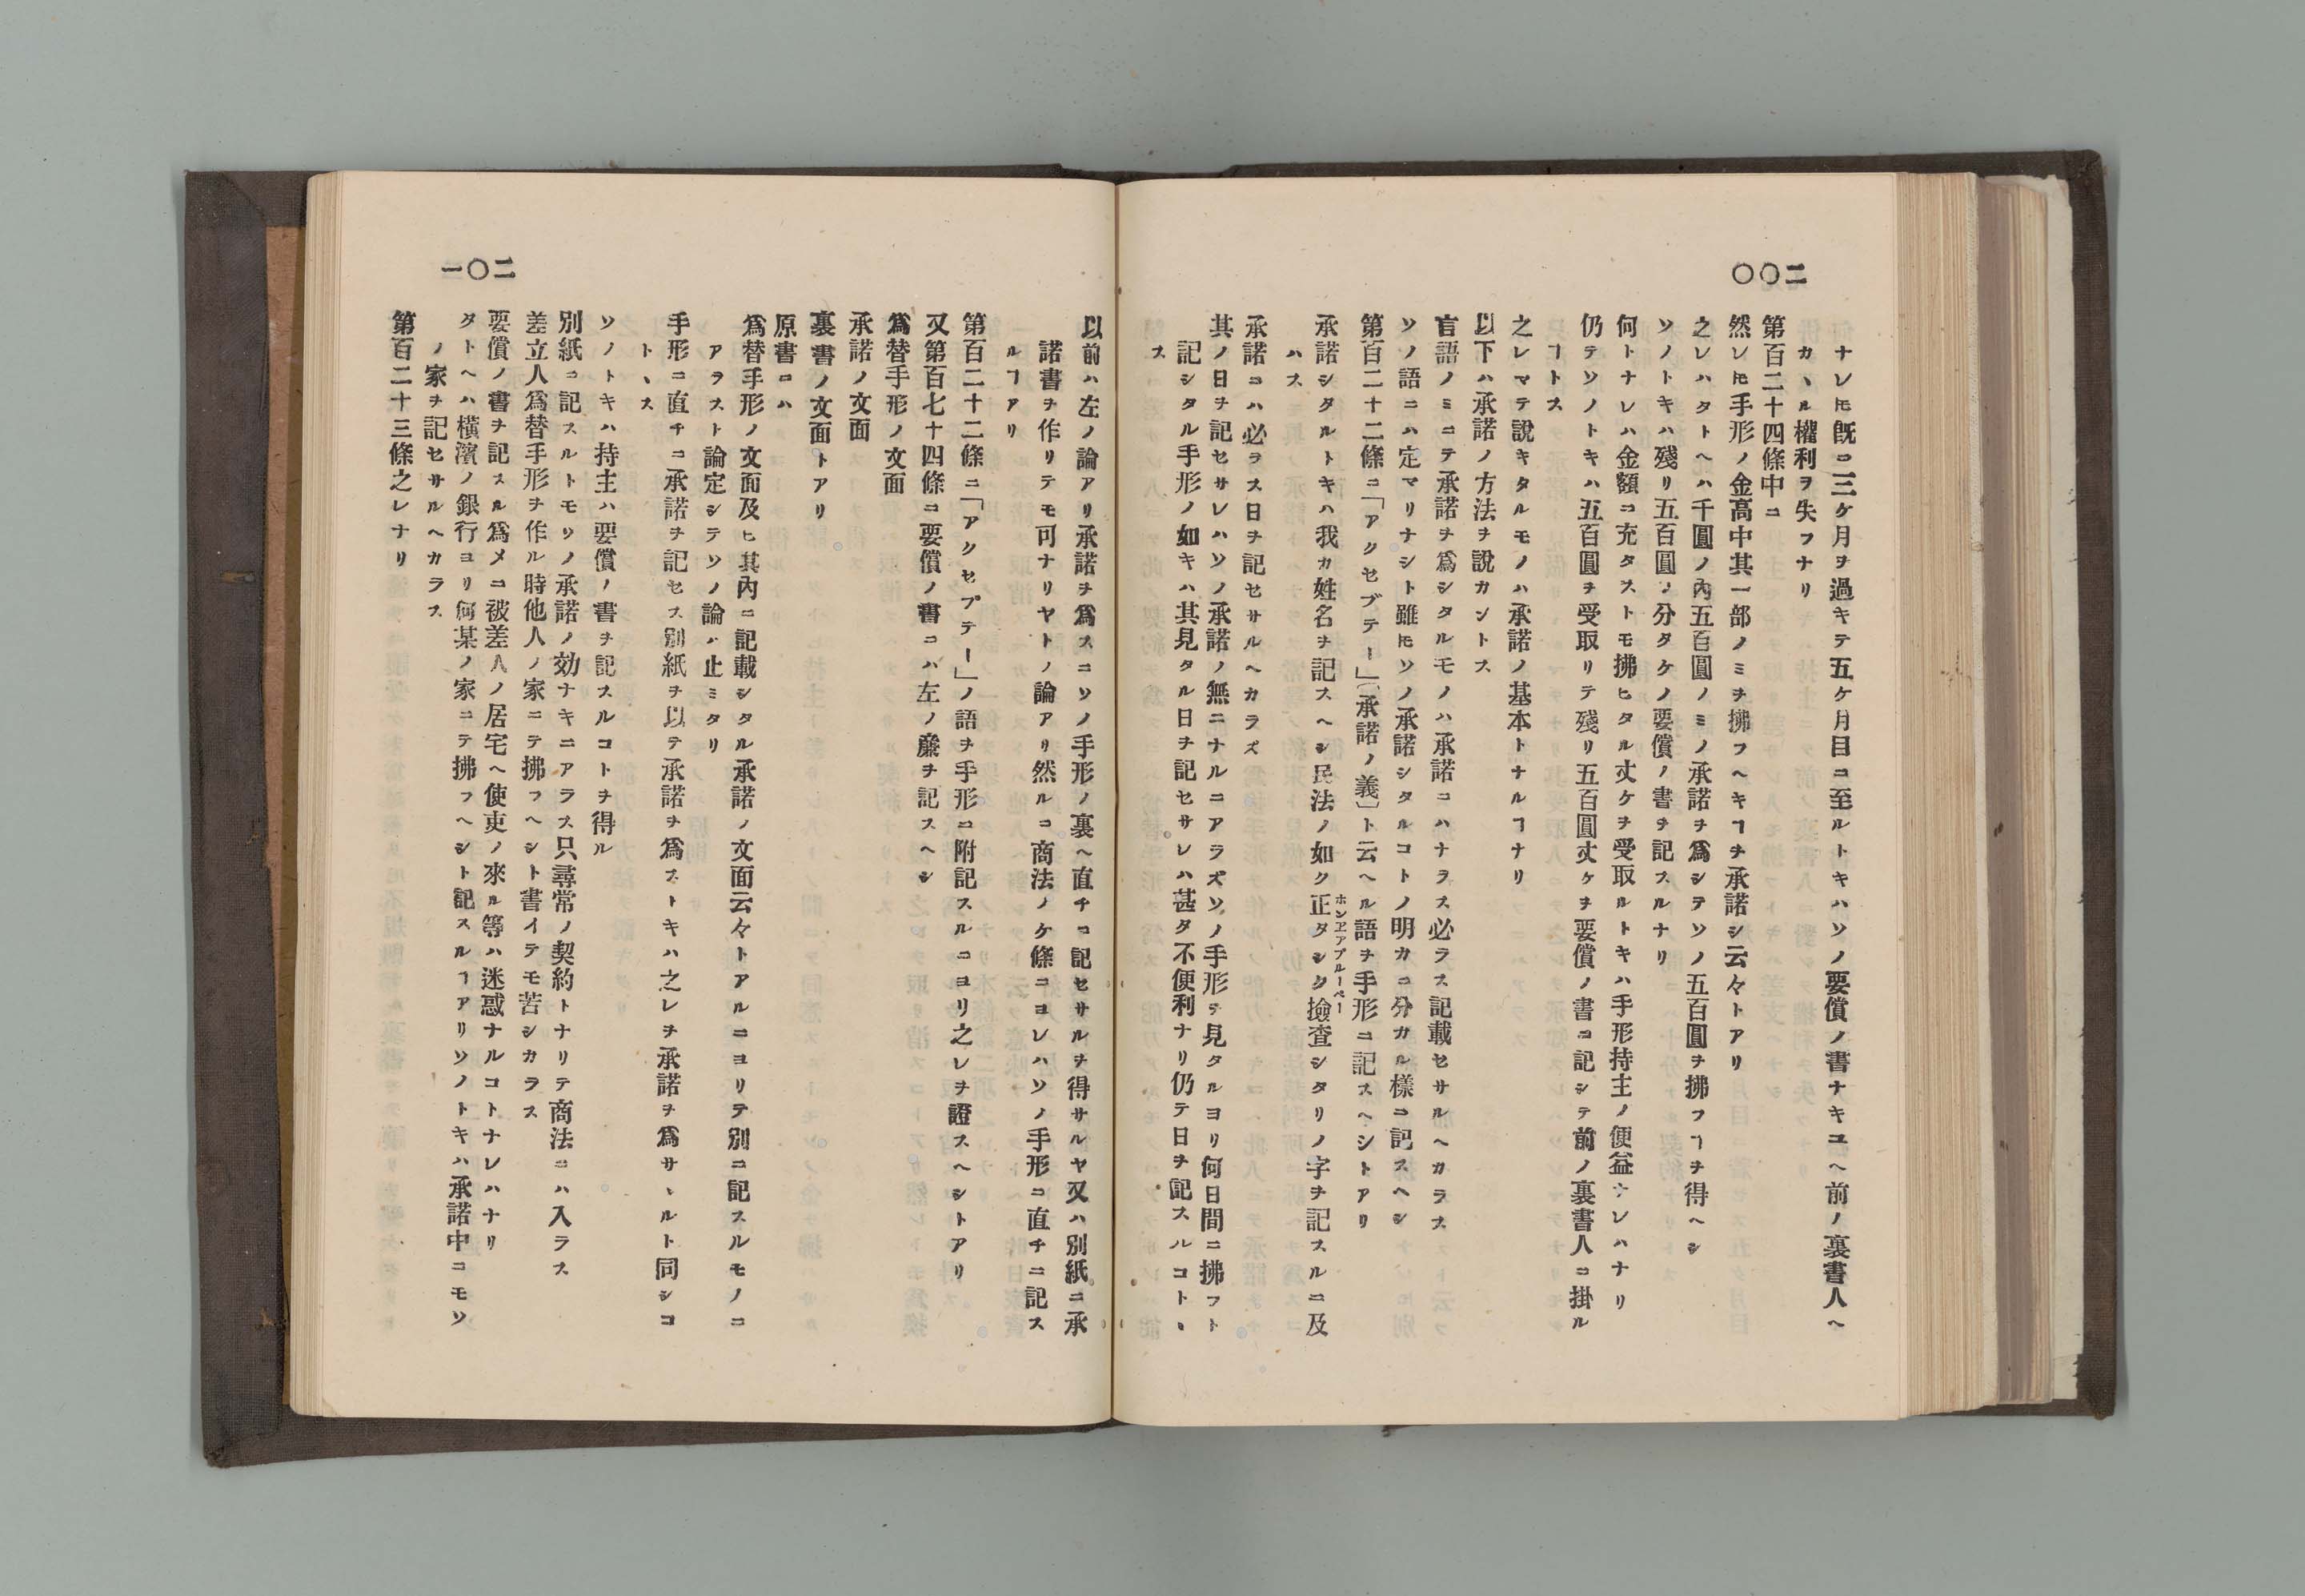 二〇〇
ナレ𪜈既ニ三ケ月ヲ過キテ五ケ月目ニ至ルトキハソノ要償ノ書ナキユヘ前ノ裏書人ヘ
カヽル權利ヲ失フナリ
第百二十四條中ニ
然レ𪜈手形ノ金高中其一部ノミヲ拂フヘキヿヲ承諾シ云々トアリ
之レハタトヘハ千圓ノ內五百圓ノミノ承諾ヲ爲シテソノ五百圓ヲ拂フヿヲ得ヘシ
ソノトキハ殘リ五百圓ノ分タケノ要償ノ書ヲ記スルナリ
何トナレハ金額ニ充タストモ拂ヒタル丈ケヲ受取ルトキハ手形持主ノ便益ナレハナリ
仍テソノトキハ五百圓ヲ受取リテ殘リ五百圓丈ケヲ要償ノ書ニ記シテ前ノ裏書人ニ掛ル
ヿトス
之レマテ說キタルモノハ承諾ノ基本トナルヿナリ
以下ハ承諾ノ方法ヲ說カントス
言語ノミニテ承諾ヲ爲シタルモノハ承諾ニハナラス必ラス記載セサルヘカラス
ソノ語ニハ定マリナシト雖𪜈ソノ承諾シタルコトノ明カニ分カル樣ニ記スヘシ
第百二十二條ニ「アクセプテー」〔承諾ノ義〕ト云ヘル語ヲ手形ニ記スヘシトアリ
ホンヱアプルーベー
承諾シタルトキハ我カ姓名ヲ記スヘシ民法ノ如ク正タシク撿査シタリノ字ヲ記スルニ及
ハス
承諾ニハ必ラス日ヲ記セサルヘカラズ
其ノ日ヲ記セサレハソノ承諾ノ無ニナルニアラズソノ手形ヲ見タルヨリ何日間ニ拂フト
記シタル手形ノ如キハ其見タル日ヲ記セサレハ甚タ不便利ナリ仍テ日ヲ記スルコトヽ
ス
二〇一
以前ハ左ノ論アリ承諾ヲ爲スニソノ手形ノ裏ヘ直チニ記セサルヲ得サルヤ又ハ別紙ニ承
諾書ヲ作リテモ可ナリヤトノ論アリ然ルニ商法ノケ條ニヨレハソノ手形ニ直チニ記ス
ルヿアリ
第百二十二條ニ「アクセプテー」ノ語ヲ手形ニ附記スルニヨリ之レヲ證スヘシトアリ
又第百七十四條ニ要償ノ書ニハ左ノ廉ヲ記スヘシ
爲替手形ノ文面
承諾ノ文面
裏書ノ文面トアリ
原書ニハ
爲替手形ノ文面及ヒ其內ニ記載シタル承諾ノ文面云々トアルニヨリテ別ニ記スルモノニ
アラスト論定シテソノ論ハ止ミタリ
手形ニ直チニ承諾ヲ記セス別紙ヲ以テ承諾ヲ爲ストキハ之レヲ承諾ヲ爲サヽルト同シコ
トヽス
ソノトキハ持主ハ要償ノ書ヲ記スルコトヲ得ル
別紙ニ記スルトモソノ承諾ノ効ナキニアラス只尋常ノ契約トナリテ商法ニハ入ラス
差立人爲替手形ヲ作ル時他人ノ家ニテ拂フヘシト書イテモ苦シカラス
要償ノ書ヲ記スル爲メニ被差人ノ居宅ヘ使吏ノ來ル等ハ迷惑ナルコトナレハナリ
タトヘハ橫濱ノ銀行ヨリ何某ノ家ニテ拂フヘシト記スルヿアリソノトキハ承諾中ニモソ
ノ家ヲ記セサルヘカラス
第百二十三條之レナリ